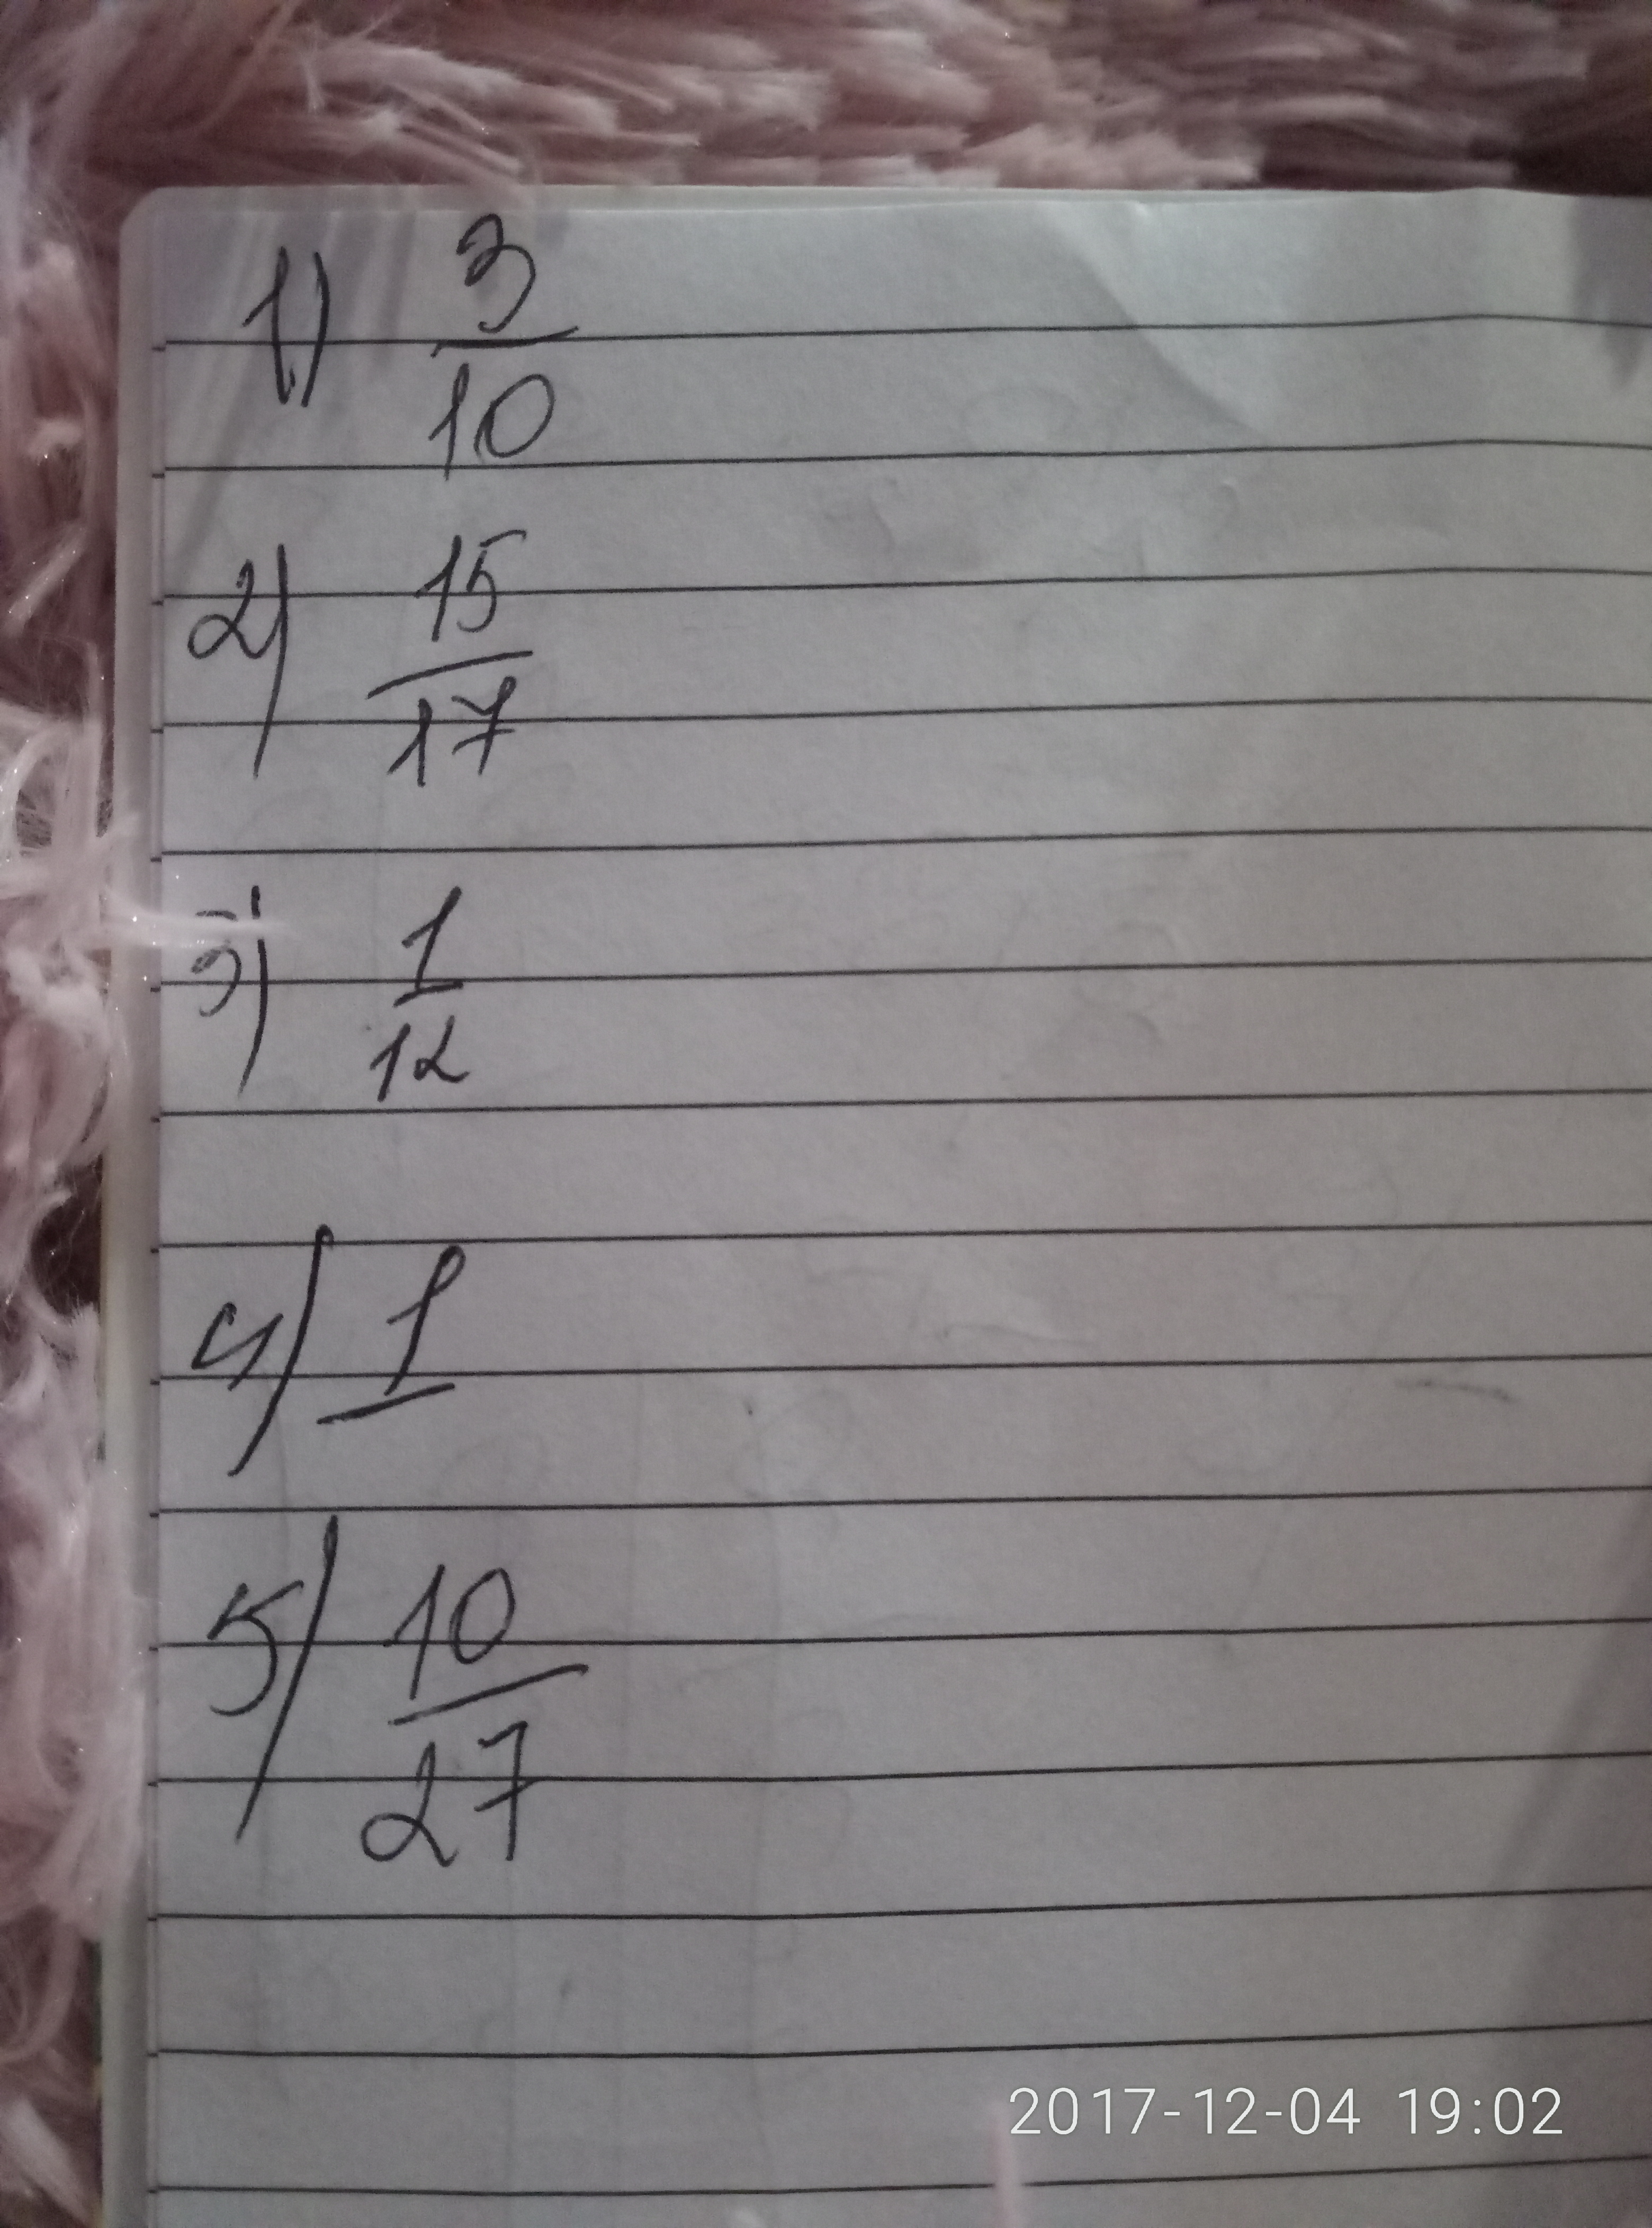 1) 3
10
2) 15
17
3) 1
12
4) 1
5) 10
27
2017-12-04 19:02